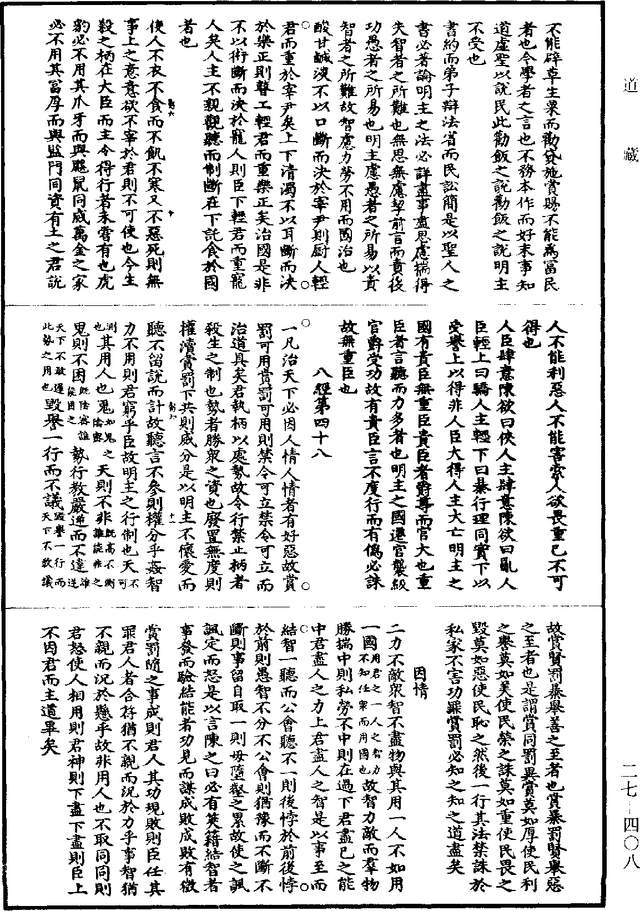 道藏
不能辟草生粟而勸貸施賞賜不能爲富民
者也今學者之言也不務本作而好末事知
道虛聖以説民此勸飯之説勸飯之説明主
不受也
書約而弟子辯法省而民訟簡是以聖人之
書必著論明主之法必詳盡事盡思慮揣得
失智者之所難也無思無慮挈前言而責後
功愚者之所易也明主慮愚者之所易以責
智者之所難故智慮力勞不用而國治也
酸甘鹹淡不以口斷而決於宰尹則厨人輕
君而重於宰尹矣上下清濁不以耳斷而決
於樂正則瞽工輕君而重樂正矣治國是非
不以術斷而決於寵人則臣下輕君而重寵
人矣人主不親觀聽而制斷在下託食於國
者也
使人不衣不食而不飢不寒又不惡死則無
事上之意意欲不宰於君則不可使也今生
殺之柄在大臣而主令得行者未嘗有也虎
豹必不用其爪牙而與鼷鼠同威萬金之家
必不用其富厚而與監門同資有土之君説
人不能利惡人不能害索人欲畏重己不可
得也
人臣肆意陳欲曰俠人主肆意陳欲曰亂人
臣輕上曰驕人主輕下曰暴行理同實下以
受譽上以得非人臣大得人主大亡明主之
國有貴臣無重臣貴臣者爵尊而官大也重
臣者言聽而力多者也明主之國遷官襲級
官爵受功故有貴臣言不度行而有僞必誅
故無重臣也
八經第四十八
一凡治天下必因人情人情者有好惡故賞
罰可用賞罰可用則禁令可立禁令可立而
治道具矣君執柄以處勢故令行禁止柄者
殺生之制也勢者勝衆之資也廢置無度則
權瀆賞罰下共則威分是以明主不懷愛而
聽不留説而計故聽言不參則權分乎姦智
力不用則君窮乎臣故明主之行制也天不可
測也其用人也鬼如鬼之陰密天則不非既高不測誰能非之
鬼則不困既陰密誰能困之勢行教嚴逆而不違雖逆
天下不敢違此勢之用也毀譽一行而不議毀譽一行而天下不敢議
故賞賢罰暴舉善之至者也賞暴罰賢舉惡
之至者也是謂賞同罰異賞莫如厚使民利
之譽莫如美使民榮之誅莫如重使民畏之
毀莫如惡使民恥之然後一行其法禁誅於
私家不害功罪賞罰必知之知之道盡矣
因情
二力不敵衆智不盡物與其用一人不如用
一國用君之一人之智力不知任衆而用國也故智力敵而羣物
勝揣中則私勞不中則在過下君盡己之能
中君盡人之力上君盡人之智是以事至而
結智一聽而公會聽不一則後悖於前後悖
於前則愚智不分不公會則猶豫而不斷不
斷則事留自取一則毋墮壑之累故使之諷
諷定而怒是以言陳之曰必有筴籍結智者
事發而驗結能者功見而謀成敗成敗有徵
賞罰隨之事成則君人其功規敗則臣任其
罪君人者合符猶不親而況於力乎事智猶
不親而況於懸乎故非用人也不取同同則
君怒使人相用則君神則下盡下盡則臣上
不因君而主道畢矣
二七—四〇八